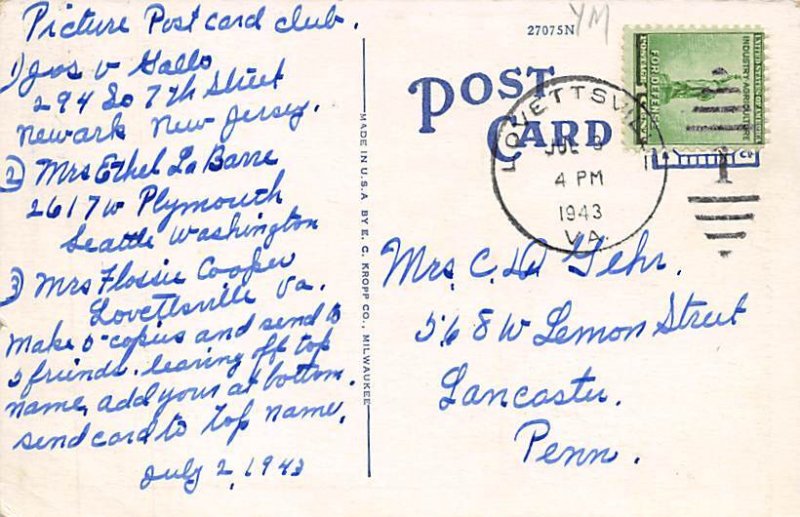 Picture Post card club.
1) Jos V Gallo
294 So 7th Street
Newark New Jersey.
2) Mrs Ethel LaBarre
2617 W Plymouth
Seattle Washington
3) Mrs Flossie Cooper
Lovettsville Va.
Make 5 copies and send to
5 friends. leaving off top
name, add yours at bottom.
send card to top name.
July 2, 1943
MADE IN U.S.A BY E. C. KROPP CO., MILWAUKEE
27075N
YM
POST
CARD
LOVETTSVILL
JUL 3
4 PM
1943
VA
UNITED STATES OF AMERICA
INDUSTRY AGRICULTURE
FOR DEFENSE
POSTAGE
1
Mrs. C. W Gehr.
568 W Lemon Street
Lancaster.
Penn.